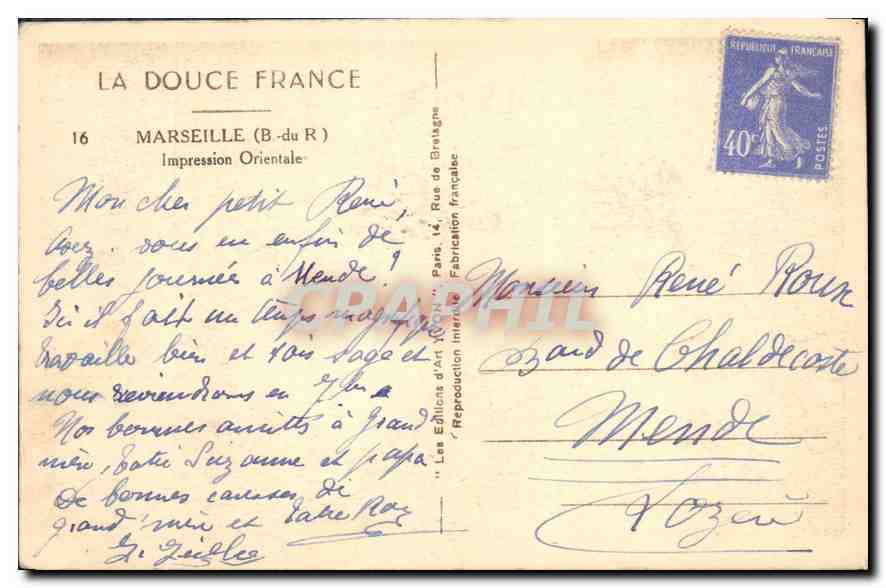 LA DOUCE FRANCE
16 MARSEILLE (B.-du R)
Impression Orientale
Mon cher petit René,
Avez-vous eu enfin de
belles journées à Mende ?
Ici il fait un temps magnifique
travaille bien et sois sage et
nous reviendrons en 7bre
Nos bonnes amitiés à Grand
mère, tatie Suzanne et papa
De bonnes caresses de
grand'mère et
" Les Editions d'Art YVON " Paris, 14, Rue de Bretagne
Reproduction Interdite Fabrication française
REPUBLIQUE FRANÇAISE
40c POSTES
Monsieur René Roux
Bard de Chaldecoste
Mende
Lozère
CPAPHIL